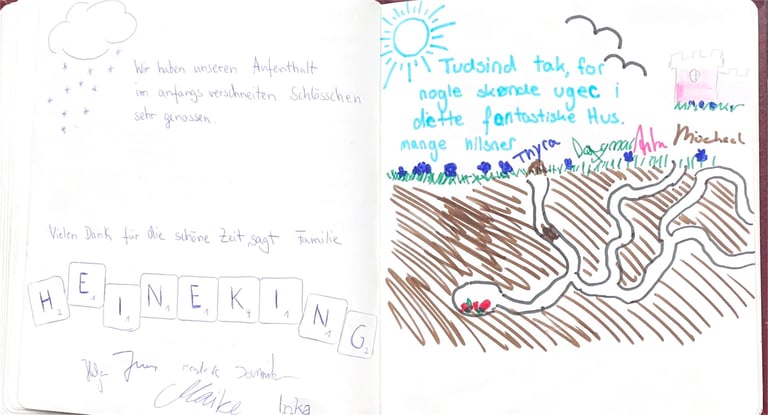 Wir haben unseren Aufenthalt
im anfangs verschneiten Schlösschen
sehr genossen.
Vielen Dank für die schöne Zeit, sagt Familie
H2 E1 I1 N1 E1 K4 I1 N1 G2
Maike Inka
Tudsind tak, for
nogle skønde uger i
dette fantastiske Hus.
mange hilsner Thyra Dagmar Michael